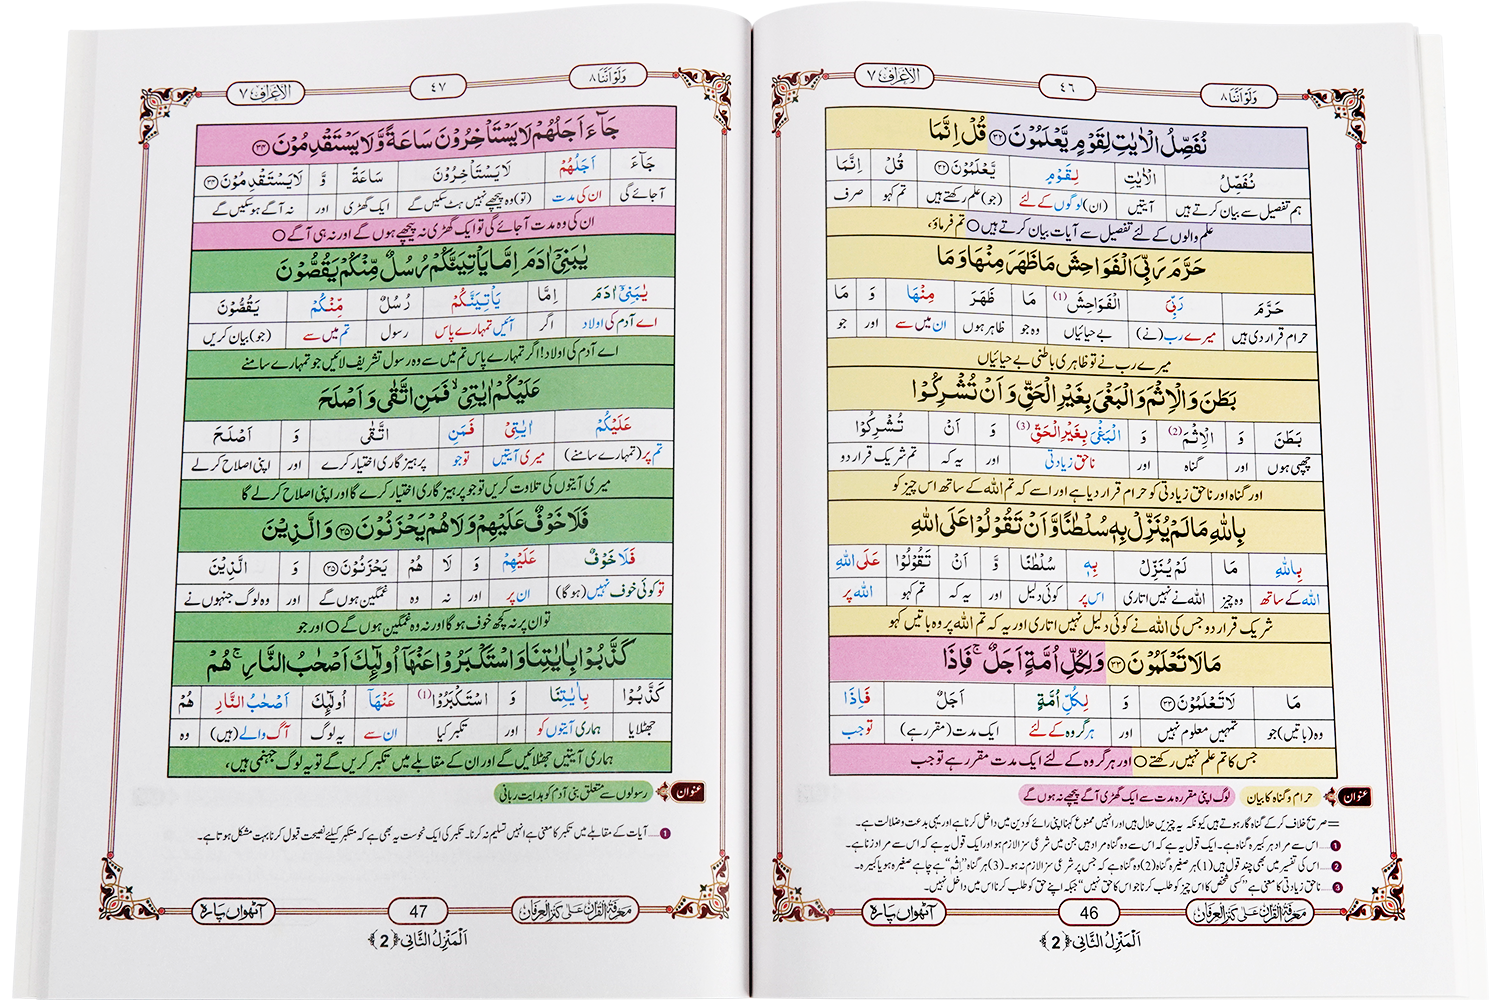 وَلَوْ اَنَّنَا ۸
٤٦
الاعراف ۷
نُفَصِّلُ الْاٰیٰتِ لِقَوْمٍ یَّعْلَمُوْنَ ﴿۳۲﴾ قُلْ اِنَّمَا
نُفَصِّلُ الْاٰیٰتِ لِقَوْمٍ یَّعْلَمُوْنَ ﴿۳۲﴾ قُلْ اِنَّمَا
ہم تفصیل سے بیان کرتے ہیں آیتیں (ان) لوگوں کے لئے (جو) علم رکھتے ہیں تم کہو صرف
علم والوں کے لئے تفصیل سے آیات بیان کرتے ہیں ○ تم فرماؤ،
حَرَّمَ رَبِّیَ الْفَوَاحِشَ مَا ظَهَرَ مِنْهَا وَ مَا
حَرَّمَ رَبِّیَ الْفَوَاحِشَ (1) مَا ظَهَرَ مِنْهَا وَ مَا
حرام قرار دی ہیں میرے رب (نے) بے حیائیاں وہ جو ظاہر ہوں ان میں سے اور جو
میرے رب نے تو ظاہری باطنی بے حیائیاں
بَطَنَ وَ الْاِثْمَ وَ الْبَغْیَ بِغَیْرِ الْحَقِّ وَ اَنْ تُشْرِكُوْا
بَطَنَ وَ الْاِثْمَ (2) وَ الْبَغْیَ بِغَیْرِ الْحَقِّ (3) وَ اَنْ تُشْرِكُوْا
چھپی ہوں اور گناہ اور ناحق زیادتی اور یہ کہ تم شریک قرار دو
اور گناہ اور ناحق زیادتی کو حرام قرار دیا ہے اور اسے کہ تم اللہ کے ساتھ اس چیز کو
بِاللّٰهِ مَا لَمْ یُنَزِّلْ بِهٖ سُلْطٰنًا وَّ اَنْ تَقُوْلُوْا عَلَى اللّٰهِ
بِاللّٰهِ مَا لَمْ یُنَزِّلْ بِهٖ سُلْطٰنًا وَّ اَنْ تَقُوْلُوْا عَلَى اللّٰهِ
اللہ کے ساتھ وہ چیز اللہ نے نہیں اتاری اس پر کوئی دلیل اور یہ کہ تم کہو اللہ پر
شریک قرار دو جس کی اللہ نے کوئی دلیل نہیں اتاری اور یہ کہ تم اللہ پر وہ باتیں کہو
مَا لَا تَعْلَمُوْنَ ﴿۳۳﴾ وَ لِكُلِّ اُمَّةٍ اَجَلٌۚ فَاِذَا
مَا لَا تَعْلَمُوْنَ ﴿۳۳﴾ وَ لِكُلِّ اُمَّةٍ اَجَلٌ فَاِذَا
وہ (باتیں) جو تمہیں معلوم نہیں اور ہر گروہ کے لئے ایک مدت (مقرر ہے) تو جب
جس کا تم علم نہیں رکھتے ○ اور ہر گروہ کے لئے ایک مدت مقرر ہے تو جب
عنوان حرام و گناہ کا بیان لوگ اپنی مقررہ مدت سے ایک گھڑی آگے پیچھے نہ ہوں گے
=صریح خلاف کر کے گناہ گار ہوتے ہیں کیونکہ یہ چیزیں حلال ہیں اور انہیں ممنوع کہنا اپنی رائے کو دین میں داخل کرنا ہے اور یہی بدعت و ضلالت ہے۔
1....اس سے مراد ہر کبیرہ گناہ ہے۔ ایک قول یہ ہے کہ اس سے وہ گناہ مراد ہیں جن میں شرعی سزا لازم ہو اور ایک قول یہ ہے کہ اس سے مراد زنا ہے۔
2....اس کی تفسیر میں بھی چند قول ہیں (1) ہر صغیرہ گناہ (2) وہ گناہ ہے کہ جس پر شرعی سزا لازم نہ ہو۔ (3) ہر گناہ ”اِثْم“ ہے چاہے صغیرہ ہو یا کبیرہ۔
3....ناحق زیادتی کا معنی ہے ”کسی شخص کا اس چیز کو طلب کرنا جو اس کا حق نہیں“ جبکہ اپنے حق کو طلب کرنا اس میں داخل نہیں۔
معرفۃ القرآن علیٰ کنز العرفان
46
آٹھواں پارہ
اَلْمَنْزِلُ الثَّانِی ﴿2﴾
وَلَوْ اَنَّنَا ۸
٤٧
الاعراف ۷
جَآءَ اَجَلُهُمْ لَا یَسْتَاْخِرُوْنَ سَاعَةً وَّ لَا یَسْتَقْدِمُوْنَ ﴿۳۴﴾
جَآءَ اَجَلُهُمْ لَا یَسْتَاْخِرُوْنَ سَاعَةً وَّ لَا یَسْتَقْدِمُوْنَ ﴿۳۴﴾
آجائے گی ان کی مدت (تو) وہ پیچھے نہیں ہٹ سکیں گے ایک گھڑی اور نہ آگے ہو سکیں گے
ان کی وہ مدت آجائے گی تو ایک گھڑی نہ پیچھے ہوں گے اور نہ ہی آگے ○
یٰبَنِیْۤ اٰدَمَ اِمَّا یَاْتِیَنَّكُمْ رُسُلٌ مِّنْكُمْ یَقُصُّوْنَ
یٰبَنِیْۤ اٰدَمَ اِمَّا یَاْتِیَنَّكُمْ رُسُلٌ مِّنْكُمْ یَقُصُّوْنَ
اے آدم کی اولاد اگر آئیں تمہارے پاس رسول تم میں سے (جو) بیان کریں
اے آدم کی اولاد! اگر تمہارے پاس تم میں سے وہ رسول تشریف لائیں جو تمہارے سامنے
عَلَیْكُمْ اٰیٰتِیْۙ فَمَنِ اتَّقٰى وَ اَصْلَحَ
عَلَیْكُمْ اٰیٰتِیْ فَمَنِ اتَّقٰى وَ اَصْلَحَ
تم پر (تمہارے سامنے) میری آیتیں تو جو پرہیز گاری اختیار کرے اور اپنی اصلاح کرلے
میری آیتوں کی تلاوت کریں تو جو پرہیز گاری اختیار کرے گا اور اپنی اصلاح کرلے گا
فَلَا خَوْفٌ عَلَیْهِمْ وَ لَا هُمْ یَحْزَنُوْنَ ﴿۳۵﴾ وَ الَّذِیْنَ
فَلَا خَوْفٌ عَلَیْهِمْ وَ لَا هُمْ یَحْزَنُوْنَ ﴿۳۵﴾ وَ الَّذِیْنَ
تو کوئی خوف نہیں (ہوگا) ان پر اور نہ وہ غمگین ہوں گے اور وہ لوگ جنہوں نے
تو ان پر نہ کچھ خوف ہوگا اور نہ وہ غمگین ہوں گے ○ اور جو
كَذَّبُوْا بِاٰیٰتِنَا وَ اسْتَكْبَرُوْا عَنْهَاۤ اُولٰٓىٕكَ اَصْحٰبُ النَّارِۚ هُمْ
كَذَّبُوْا بِاٰیٰتِنَا وَ اسْتَكْبَرُوْا (1) عَنْهَاۤ اُولٰٓىٕكَ اَصْحٰبُ النَّارِ هُمْ
جھٹلایا ہماری آیتوں کو اور تکبر کیا ان سے یہ لوگ آگ والے (ہیں) وہ
ہماری آیتیں جھٹلائیں گے اور ان کے مقابلے میں تکبر کریں گے تو یہ لوگ جہنمی ہیں،
عنوان رسولوں سے متعلق بنی آدم کو ہدایت ربانی
1....آیات کے مقابلے میں تکبر کا معنی ہے انہیں تسلیم نہ کرنا۔ تکبر کی ایک نحوست یہ بھی ہے کہ متکبر کیلئے نصیحت قبول کرنا بہت مشکل ہوتا ہے۔
معرفۃ القرآن علیٰ کنز العرفان
47
آٹھواں پارہ
اَلْمَنْزِلُ الثَّانِی ﴿2﴾